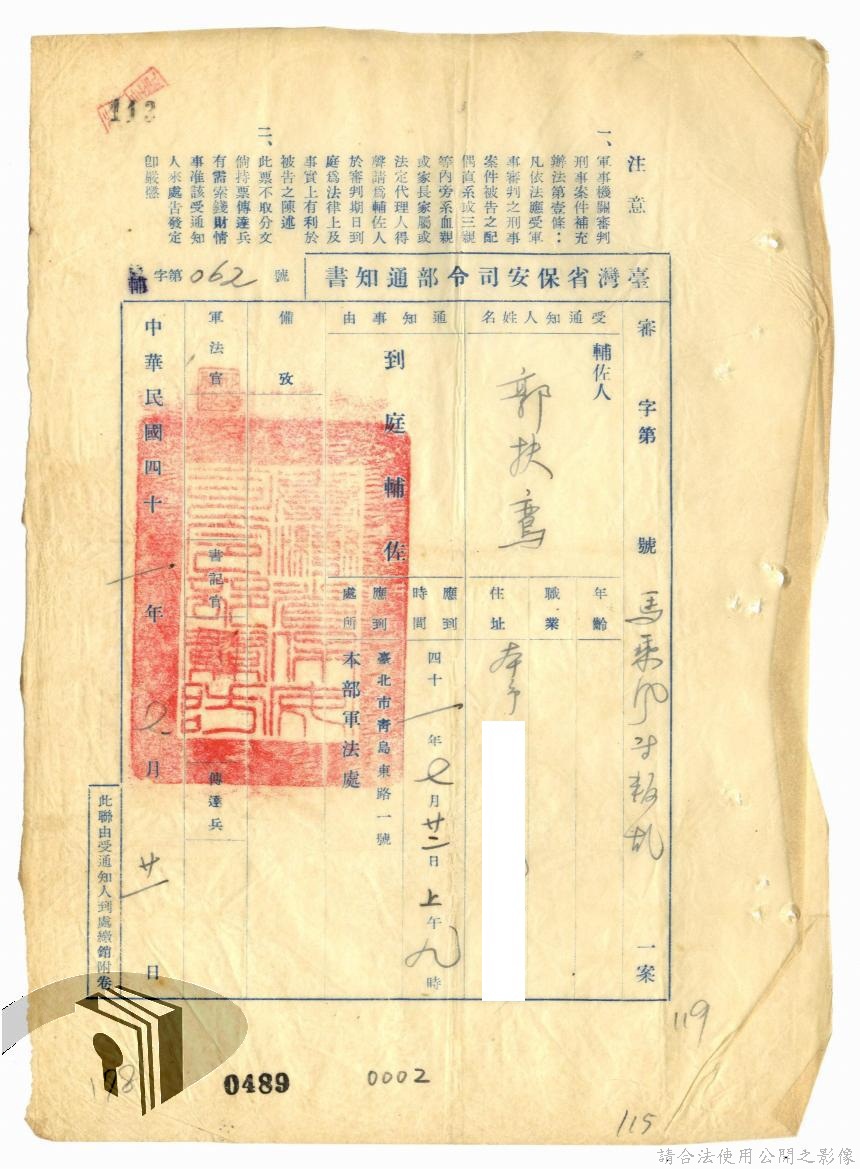 113
注意
一、軍事機關審判
刑事案件補充
辦法第壹條：
凡依法應受軍
事審判之刑事
案件被告之配
偶直系或三親
等內旁系血親
或家長家屬或
法定代理人得
聲請為輔佐人
於審判期日到
庭為法律上及
事實上有利於
被告之陳述
二、此票不取分文
倘持票傳達兵
有需索錢財情
事准該受通知
人來處告發定
卽嚴懲
臺灣省保安司令部通知書
輔字第062號
審字第　號馬乘風等叛亂一案
受通知人姓名
輔佐人
郭扶鸞
年齡
職業
住址
本市
通知事由
到庭輔佐
應到時間
四十一年七月廿二日上午九時
應到處所
臺北市靑島東路一號
本部軍法處
備攷
軍法官
書記官
傳達兵
中華民國四十一年　月廿一日
此聯由受通知人到處繳銷附卷
119
0489
0002
115
請合法使用公開之影像